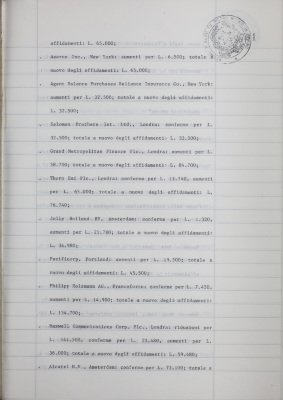 affidamenti: L. 65.000;
. Amarco Inc., New York: aumenti per L. 6.500; totale a
nuovo degli affidamenti: L. 65.000;
. Agent Balance Purchases Reliance Insurance Co., New York:
aumenti per L. 32.500; totale a nuovo degli affidamenti:
L. 32.500;
. Salomon Brothers Int. Ltd., Londra: conferme per L.
32.500; totale a nuovo degli affidamenti: L. 32.500;
. Grand Metropolitan Finance Plc., Londra: aumenti per L.
totale a nuovo degli affidamenti: L. 84.700;
. Thorn Emi Plc., Londra: conferme per L. 13.740, aumenti
per L. 65.000; totale a nuovo degli affidamenti: L.
78.740;
. Jolly Holland BV, Amsterdam: conferme per L.
aumenti per L. 21.780; totale a nuovo degli affidamenti:
L.
. Pacificorp, Portland: aumenti per L. 19.500; totale a
nuovo degli affidamenti: L. 45.500;
. Philipp Holzmann AG., Francoforte: conferme per L. 7.420,
aumenti per L. 14.980; totale a nuovo degli affidamenti:
L. 134.700;
. Maxwell Communications Corp. Plc., Londra: riduzioni per
L. conferme per L. 23.488, aumenti per L.
totale a nuovo degli affidamenti: L. 59.488;
. Alcatel N.V., Amsterdam: conferme per L. totale a